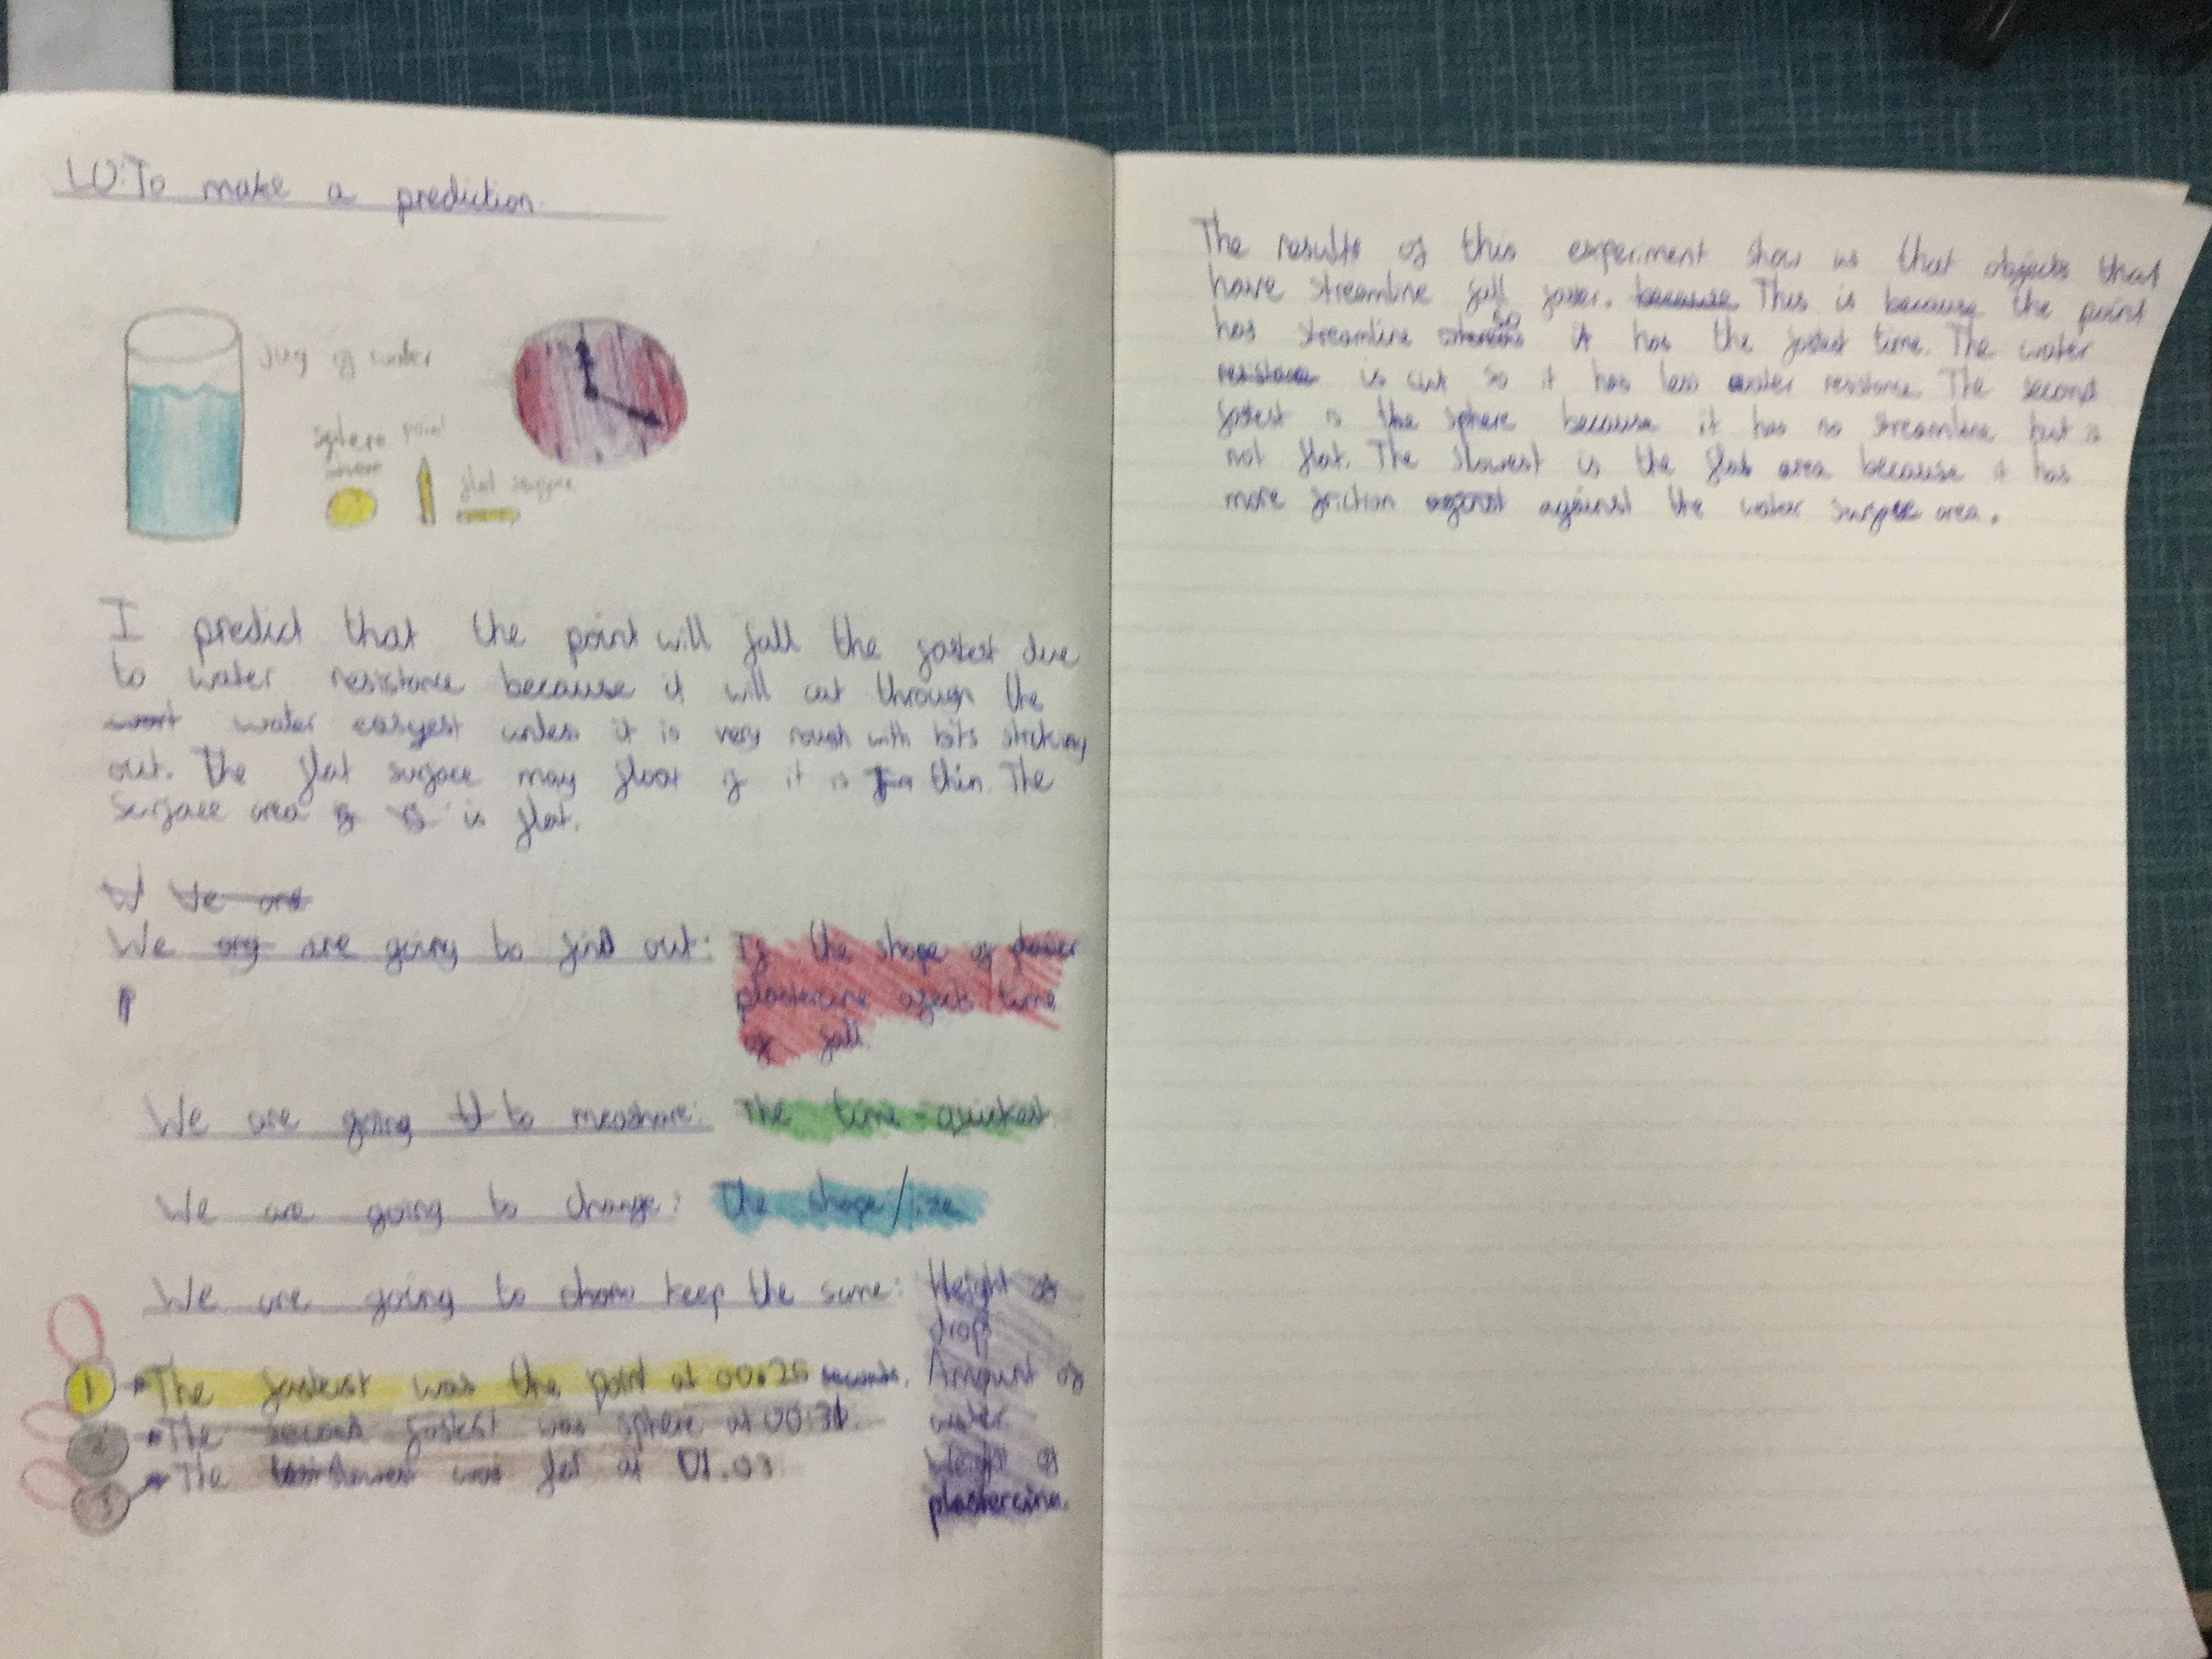 LO: To make a prediction.
Jug of water
sphere point
flat surface
I predict that the point will fall the fastest due
to water resistance because it will cut through the
water easyest unless it is very rough with bits sticking
out. The flat surface may float if it is thin. The
surface area is flat.
We are
We are going to find out: If the shape of
plastercine afects time
of fall.
We are going to meashare: The time - quickest
We are going to change: The shape/size
We are going to keep the same: Height of
drop
Amount of
water
Weight of
plastercine.
1 The fastest was the point at 00.25 seconds.
2 The second fastest was sphere at 00:31.
3 The slowest was flat at 01.03
The results of this experiment show us that objects that
have streamline fall faster. because This is because the point
has streamline so it has the fastest time. The water
resistance is cut so it has less water resistance. The second
fastest is the sphere because it has no streamline but is
not flat. The slowest is the flat area because it has
more friction against against the water surface area.